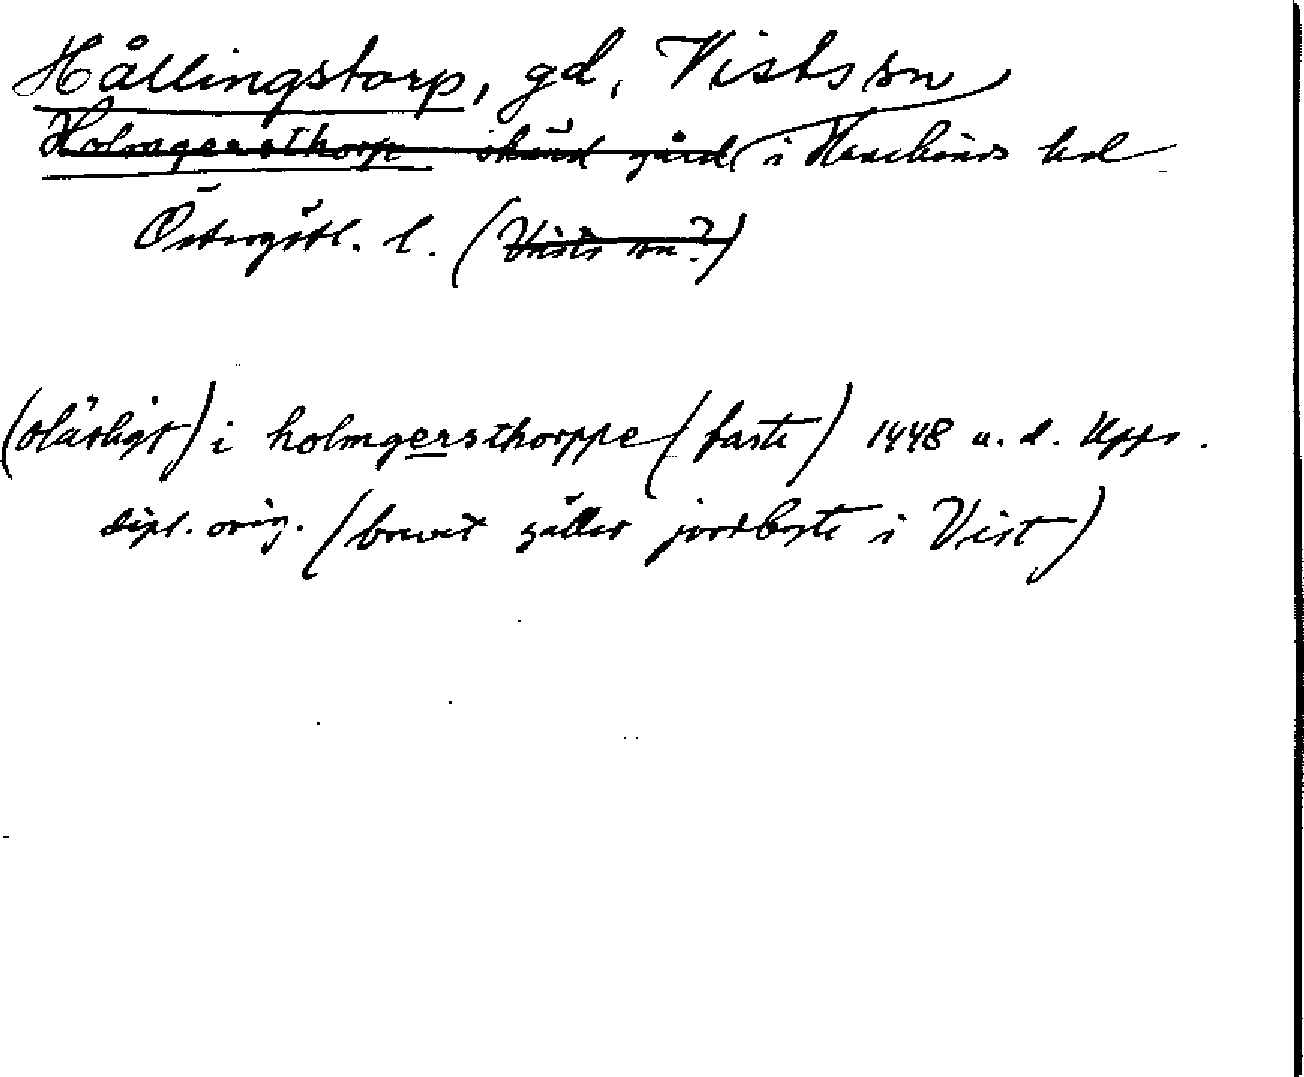 Hållingstorp, gd, Vists sn
Holmgersthorp okänd gård i Hanekinds hd
Östergötl. l. (Vists sn?)
(oläsligt) i holmgersthorppe (faste) 1448 u. d. Upps.
dipl. orig. (brevet gäller jordbyte i Vist)